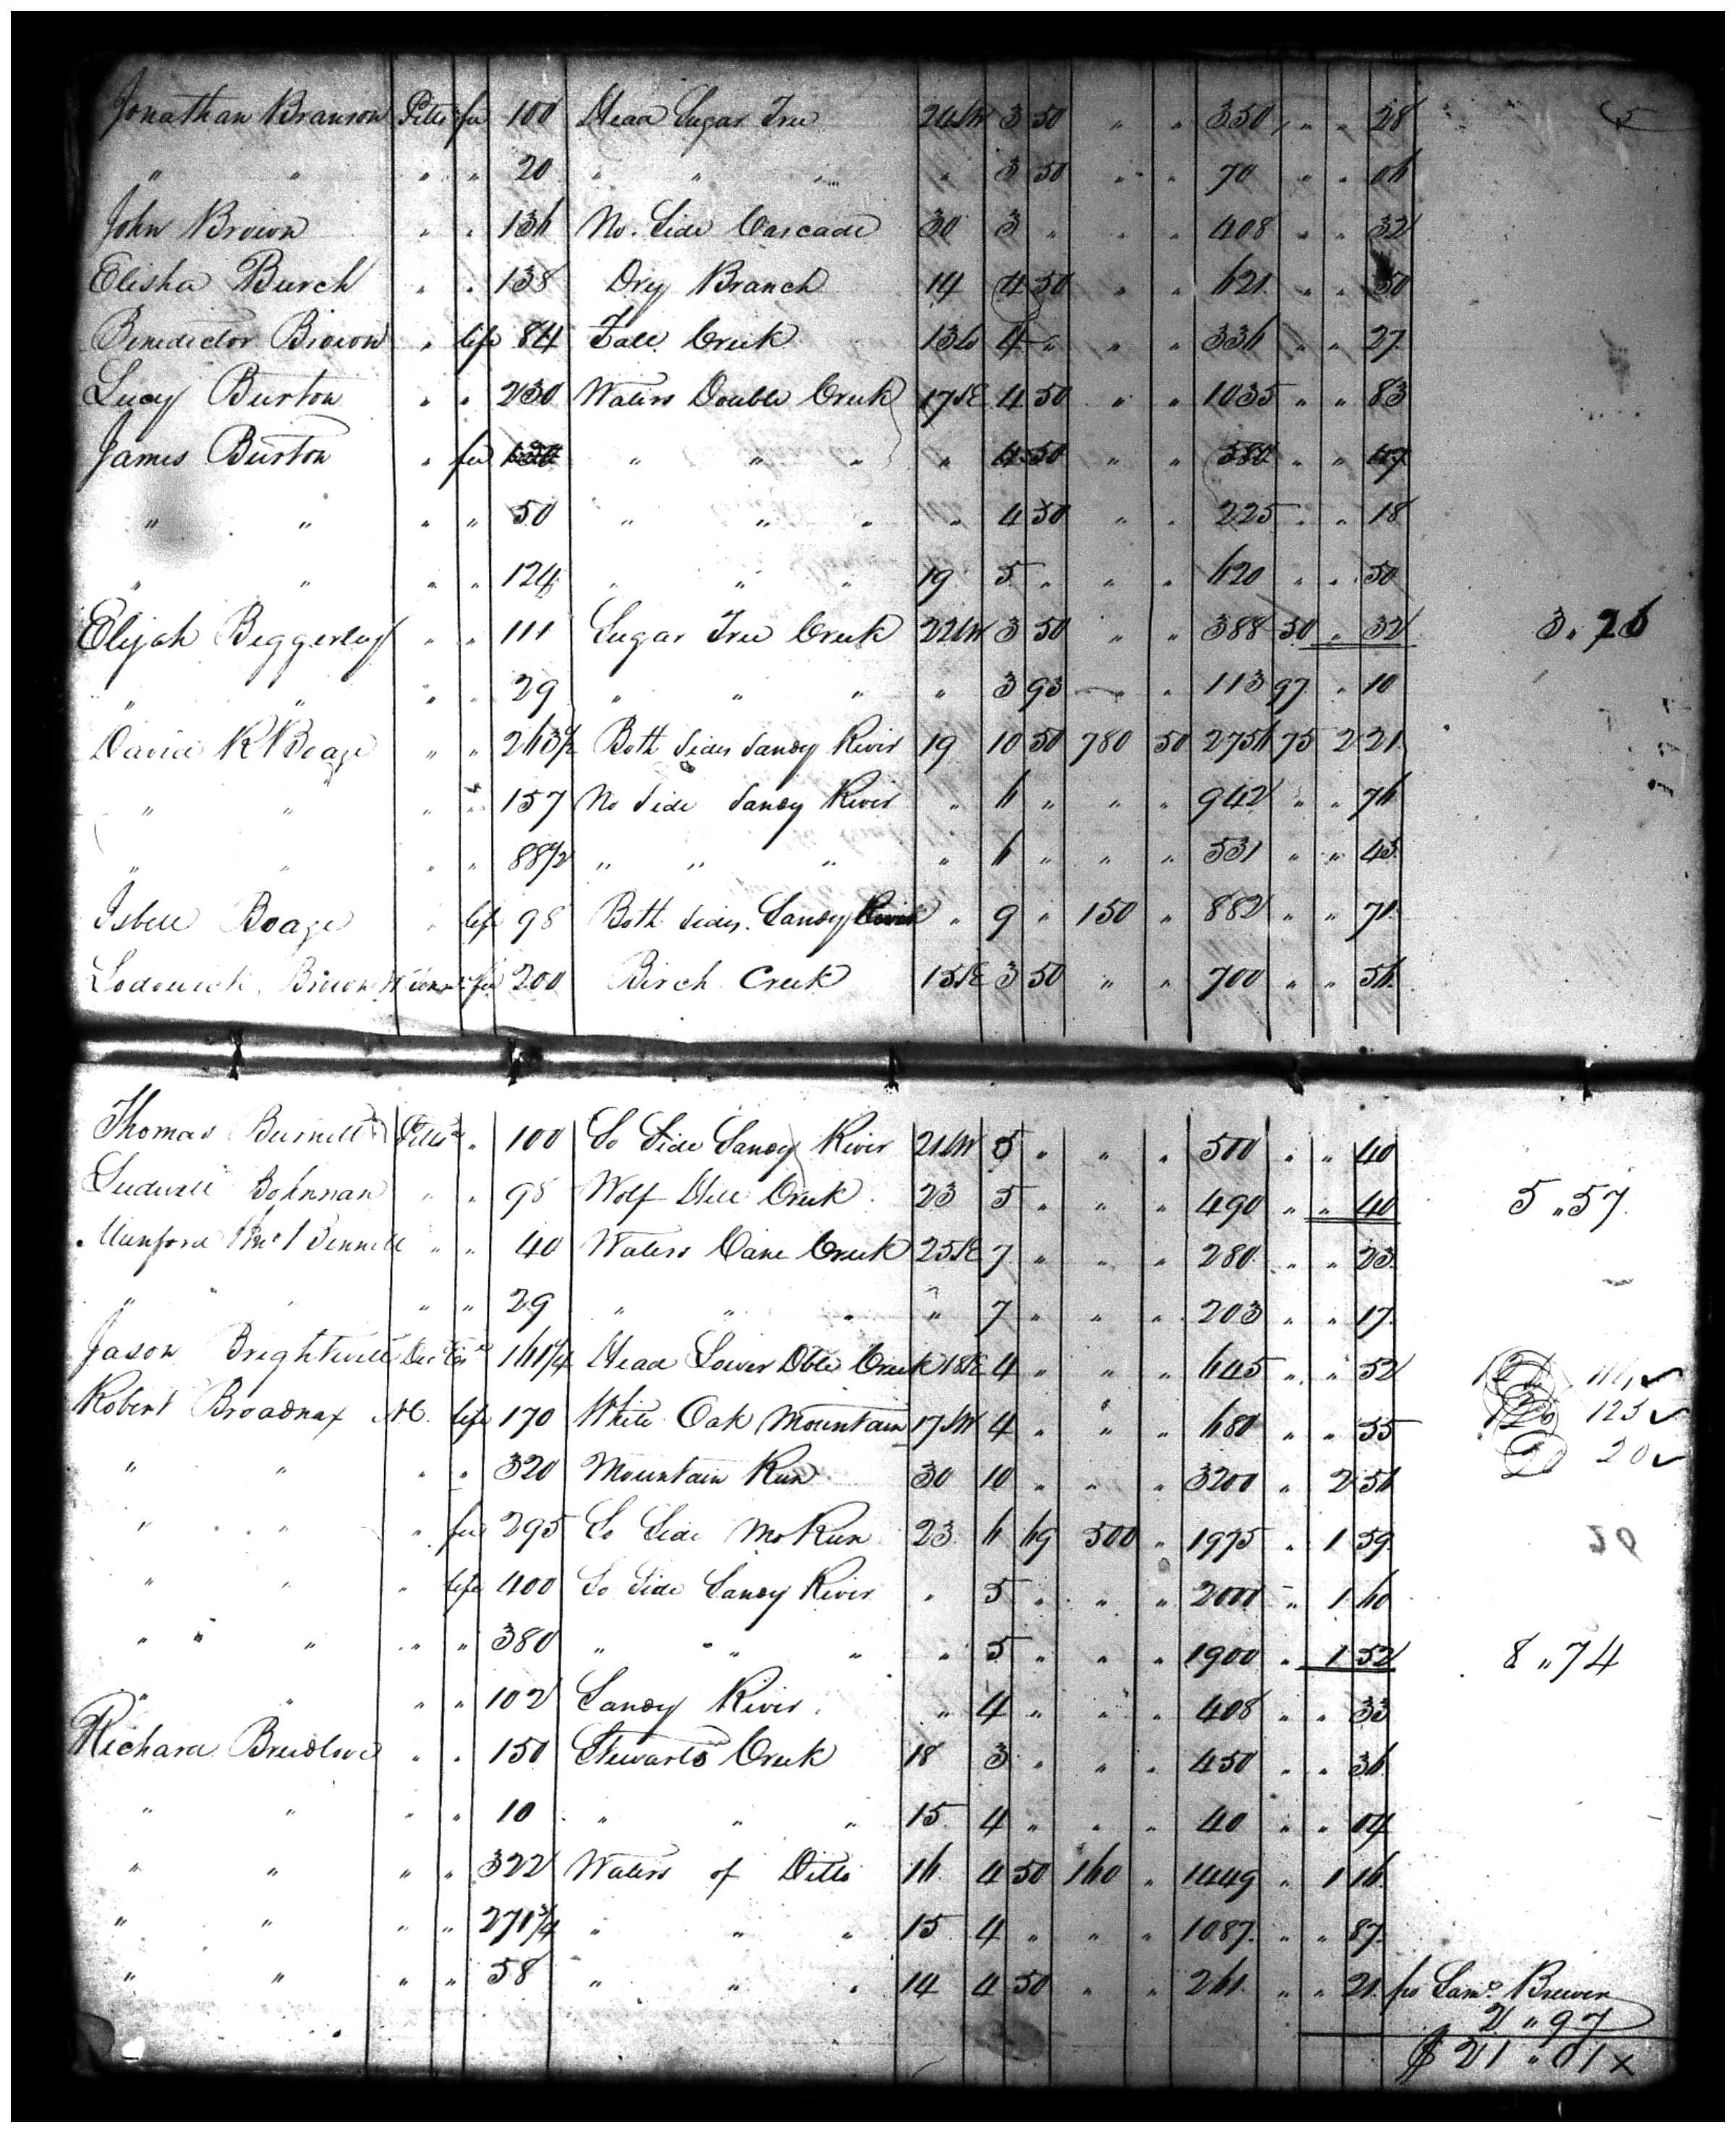 Jonathan Branson Pitts. fee 100 Head Sugar Tree 24 SW 3 50 " " 350 " " 28
" " " " 20 " " " " 3 50 " " 70 " " 06
John Brown " " 136 No. Side Cascade 30 3 " " " 408 " " 32
Elisha Burch " " 138 Dry Branch 14 4 50 " " 621 " " 50
Benedictor Brown " life 84 Fall Creek 136 4 " " " 336 " " 27
Lucy Burton " " 230 Waters Double Creek 17 SE 4 50 " " 1035 " " 83
James Burton " fee " " " " 4 50 " " " "
" " " " 50 " " " " 4 50 " " 225 " " 18
" " " " 124 " " " 19 5 " " " 620 " " 50
Elijah Beggerley " " 111 Sugar Tree Creek 22 SW 3 50 " " 388 50 " 32 3.26
" " " " 29 " " " " 3 93 " " 113 97 " 10
David R Boaze " " 263 1/2 Both Sides Sandy River 19 10 50 780 50 2756 75 2 21
" " " " 157 No Side Sandy River " 6 " " " 942 " " 76
" " " " 88 1/2 " " " " 6 " " " 531 " " 43
Isbell Boaze " life 98 Both Sides Sandy River " 9 " 150 " 882 " " 71
Lodowick Brown fee 200 Birch Creek 15 SE 3 50 " " 700 " " 56
Thomas Burnett Pitts " 100 So Side Sandy River 21 SW 5 " " " 500 " " 40
Ludwell Bohnnan " " 98 Wolf Hill Creek 23 5 " " " 490 " " 40 5 " 57
Munford Bennett " " 40 Waters Cane Creek 25 SE 7 " " " 280 " " 23
" " " " 29 " " " " 7 " " " 203 " " 17
Jason Brightwell 161 1/4 Head Lower Dble Creek 18 SE 4 " " " 645 " " 52
Robert Broadnax NC. life 170 White Oak Mountain 17 SW 4 " " " 680 " " 55 123
" " " " 320 Mountain Run 30 10 " " " 3200 " 2 56 20
" " " fee 295 So Side Mo Run 23 6 69 500 " 1975 " 1 59 20
" " " life 400 So Side Sandy River " 5 " " " 2000 " 1 60
" " " " 380 " " " " 5 " " " 1900 " 1 52 8 " 74
" " " " 102 Sandy River " 4 " " " 408 " " 33
Richard Breedlove " " 150 Stewarts Creek 18 3 " " " 450 " " 36
" " " " 10 " " " 15 4 " " " 40 " " 04
" " " " 322 Waters of Ditto 16 4 50 160 " 1449 " 1 16
" " " " 271 3/4 " " " 15 4 " " " 1087 " " 87
" " " " 58 " " " 14 4 50 " " 261 " " 21 po Saml. Brewer
2 " 97
$ 21 " 01 x